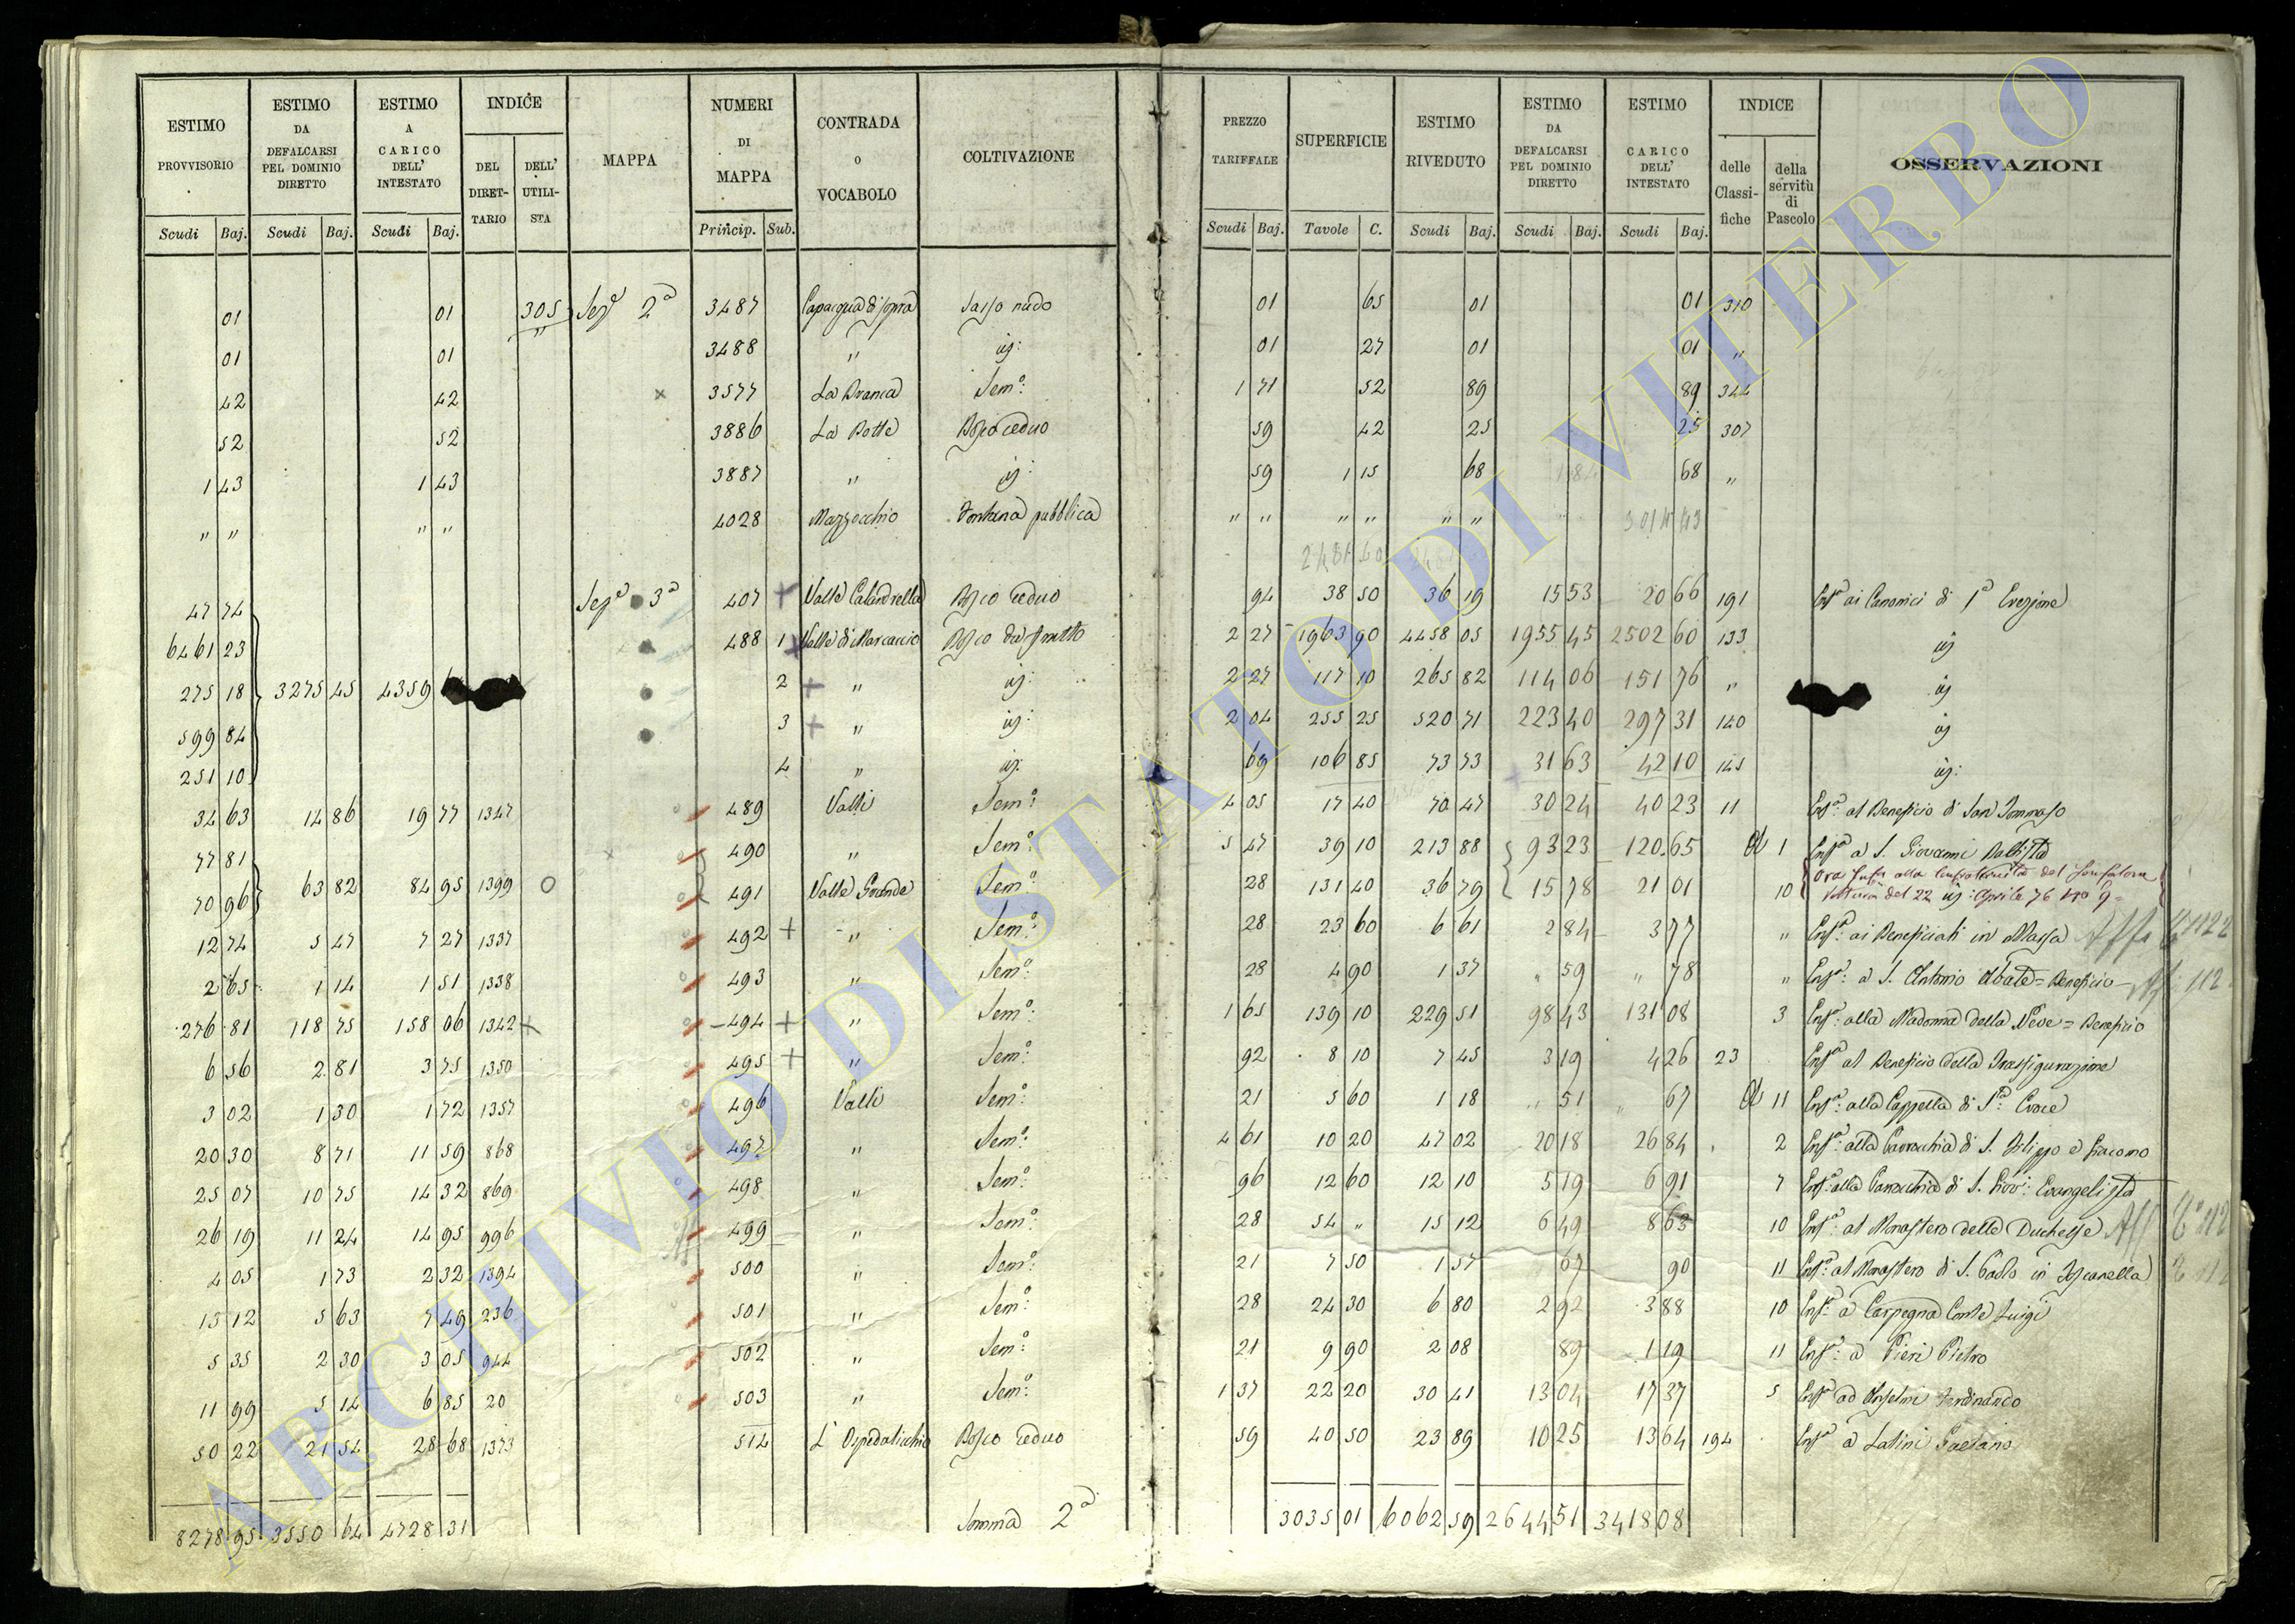 ESTIMO PROVVISORIO | ESTIMO DA DEFALCARSI PEL DOMINIO DIRETTO | ESTIMO A CARICO DELL' INTESTATO | INDICE | MAPPA | NUMERI DI MAPPA | CONTRADA O VOCABOLO | COLTIVAZIONE
DEL DIRET-TARIO | DELL' UTILI-STA
Scudi | Baj. | Scudi | Baj. | Scudi | Baj. | Princip. | Sub.
01 | 01 | 305 | Sezᵉ 2ᵃ | 3487 | Capacqua di sopra | Sasso nudo
01 | 01 | " | 3488 | " | id:
42 | 42 | x | 3577 | La Branca | Semᵒ:
52 | 52 | 3886 | La Botte | Bosco ceduo
1 43 | 1 43 | 3887 | " | id:
" " | " " | 4028 | Mazzocchio | Fontana pubblica
47 74 | Sezᵉ 3ᵃ | 407 + | Valle Calandrella | Bosco Ceduo
6461 23 | 488 | 1 x | Valle di Marcaccio | Bosco da frutto
275 18 | 3275 45 | 4359 | 2 + | " | id:
599 84 | 3 + | " | id:
251 10 | 4 | " | id:
34 63 | 14 86 | 19 77 | 1347 | 489 | Valli | Semᵒ:
77 81 | 490 | " | Semᵒ:
70 96 | 63 82 | 84 95 | 1399 | O | 491 | Valle Grande | Semᵒ:
12 74 | 5 47 | 7 27 | 1337 | 492 + | " | Semᵒ:
2 65 | 1 14 | 1 51 | 1338 | 493 | " | Semᵒ:
276 81 | 118 75 | 158 06 | 1342 + | 494 + | " | Semᵒ:
6 56 | 2 81 | 3 75 | 1350 | 495 + | " | Semᵒ:
3 02 | 1 30 | 1 72 | 1357 | 496 | Valli | Semᵒ:
20 30 | 8 71 | 11 59 | 868 | 497 | " | Semᵒ:
25 07 | 10 75 | 14 32 | 869 | 498 | " | Semᵒ:
26 19 | 11 24 | 14 95 | 996 | 499 | " | Semᵒ:
4 05 | 1 73 | 2 32 | 1394 | 500 | " | Semᵒ:
13 12 | 5 63 | 7 49 | 236 | 501 | " | Semᵒ:
5 35 | 2 30 | 3 05 | 944 | 502 | " | Semᵒ:
11 99 | 5 14 | 6 85 | 20 | 503 | " | Semᵒ:
50 22 | 21 54 | 28 68 | 1373 | 514 | L' Ospedalicchio | Bosco Ceduo
8278 95 | 3550 64 | 4728 31 | Somma 2ᵃ
PREZZO TARIFFALE | SUPERFICIE | ESTIMO RIVEDUTO | ESTIMO DA DEFALCARSI PEL DOMINIO DIRETTO | ESTIMO A CARICO DELL' INTESTATO | INDICE | OSSERVAZIONI
delle Classi-fiche | della servitù di Pascolo
Scudi | Baj. | Tavole | C. | Scudi | Baj. | Scudi | Baj. | Scudi | Baj.
01 | 65 | 01 | 01 | 310
01 | 27 | 01 | 01 | "
1 71 | 52 | 89 | 89 | 344
59 | 42 | 25 | 25 | 307
59 | 1 15 | 68 | 68 | "
" " | " " | " " | 3014 43
2481 40
94 | 38 50 | 36 19 | 15 53 | 20 66 | 191 | Enfᵃ ai Canonici di 1ᵃ Erezione
2 27 | 1963 90 | 4458 05 | 1955 45 | 2502 60 | 133 | id
2 27 | 117 10 | 265 82 | 114 06 | 151 76 | " | id
2 04 | 255 25 | 520 71 | 223 40 | 297 31 | 140 | id
69 | 106 85 | 73 73 | 31 63 | 42 10 | 145 | id:
4 05 | 17 40 | 70 47 | 30 24 | 40 23 | 11 | Enfᵃ: al Beneficio di San Tommaso
5 47 | 39 10 | 213 88 | 93 23 | 120.65 | 1 | Enfᵃ a S. Giovanni Battista
28 | 131 40 | 36 79 | 15 78 | 21 01 | 10 | Ora Enfᵃ alla Confraternita del Gonfalone
Voltura del 22 id: Aprile 76 Nᵒ 9
28 | 23 60 | 6 61 | 2 84 | 3 77 | " | Enfᵃ: ai Beneficiati in Massa
28 | 4 90 | 1 37 | " 59 | " 78 | " | Enfᵃ: a S. Antonio Abate = Beneficio
1 65 | 139 10 | 229 51 | 98 43 | 131 08 | 3 | Enfᵃ: alla Madonna della Neve = Beneficio
92 | 8 10 | 7 45 | 3 19 | 4 26 | 23 | Enfᵃ al Beneficio della Trasfigurazione
21 | 5 60 | 1 18 | " 51 | " 67 | 11 | Enfᵃ: alla Cappella di Sᵃ: Croce
4 61 | 10 20 | 47 02 | 20 18 | 26 84 | 2 | Enfᵃ: alla Parrochia di S. Filippo e Giacomo
96 | 12 60 | 12 10 | 5 19 | 6 91 | 7 | Enfᵃ: alla Parrochia di S. Giovⁱ: Evangelista
28 | 54 " | 15 12 | 6 49 | 8 63 | 10 | Enfᵃ: al Monastero delle Duchesse
21 | 7 50 | 1 57 | 67 | 90 | 11 | Enfᵃ: al Monastero di S. Paolo in Toscanella
28 | 24 30 | 6 80 | 2 92 | 3 88 | 10 | Enfᵃ: a Carpegna Conte Luigi
21 | 9 90 | 2 08 | 89 | 1 19 | 11 | Enfᵃ: a Pieri Pietro
1 37 | 22 20 | 30 41 | 13 04 | 17 37 | 5 | Enfᵃ ad Anselmi Ferdinando
59 | 40 50 | 23 89 | 10 25 | 13 64 | 194 | Enfᵃ a Latini Gaetano
3035 01 | 6062 59 | 2644 51 | 3418 08
ARCHIVIO DI STATO DI VITERBO